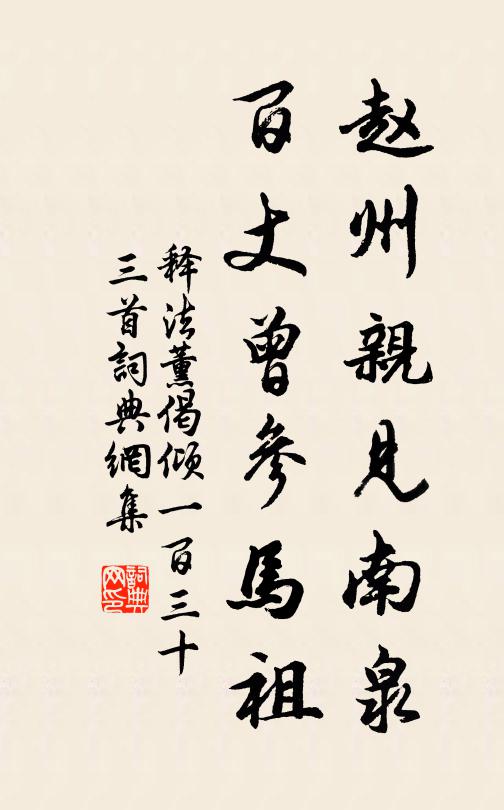 赵州親見南泉
百丈曾參馬祖
释法薰偈倾一百三十
三首詞典網集
詞典网印